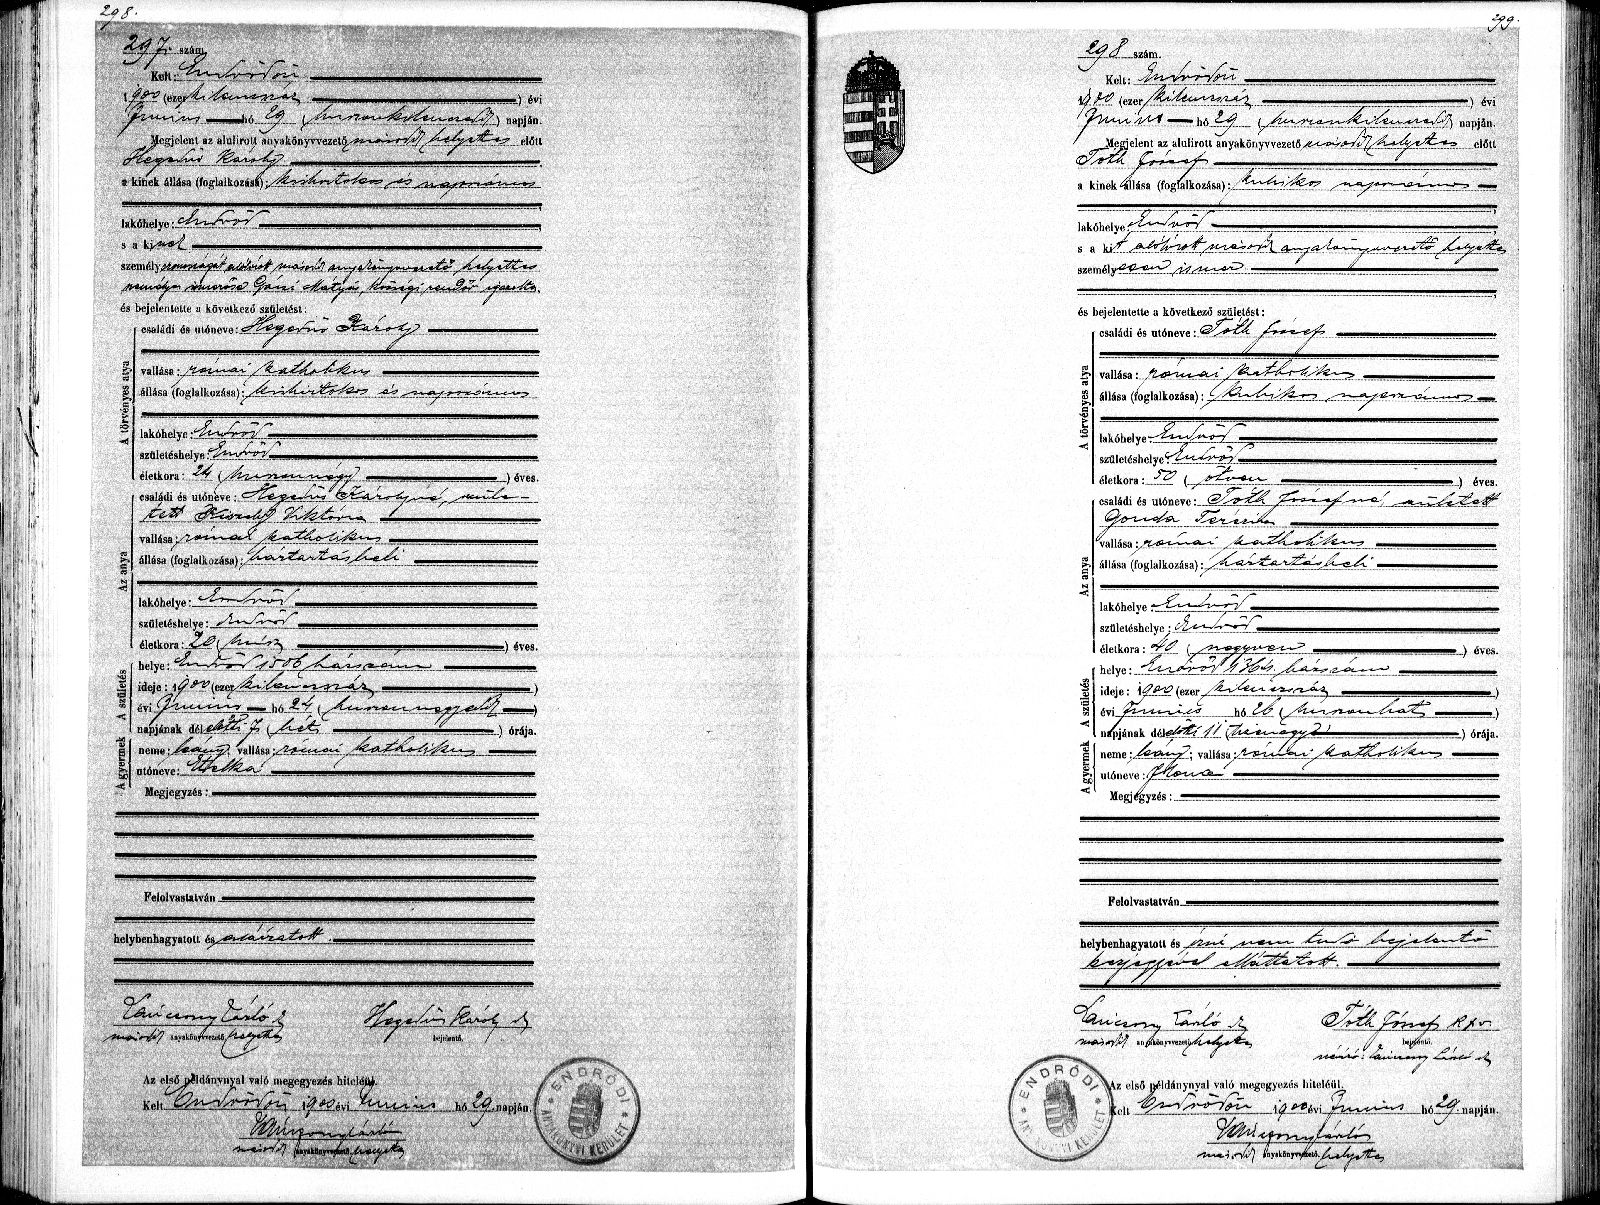 298.
297. szám.
Kelt: Endrődön
1900 (ezer kilenczszáz ) évi
Junius hó 29 (huszonkilenczedik) napján.
Megjelent az alulirott anyakönyvvezető másodh. helyettes előtt
Hegedüs Károly
a kinek állása (foglalkozása): kisbirtokos és napszámos
lakóhelye: Endrőd
s a kinek
személyazonosságát alólírott másodh. anyakönyvvezető helyettes
személyes ismerőse Mátyás, községi rendőr igazolta.
és bejelentette a következő születést:
A törvényes atya
családi és utóneve: Hegedüs Károly
vallása: római katholikus
állása (foglalkozása): kisbirtokos és napszámos
lakóhelye: Endrőd
születéshelye: Endrőd
életkora: 24 (huszonnégy ) éves.
Az anya
családi és utóneve: Hegedüs Károlyné, szüle-
tett Viktória
vallása: római katholikus
állása (foglalkozása): háztartásbeli
lakóhelye: Endrőd
születéshelye: Endrőd
életkora: 20 (húsz ) éves.
A születés
helye: Endrőd 1506 házszám
ideje: 1900 (ezer kilenczszáz )
évi Junius hó 24 (huszonnegyedik )
napjának délelőtti 7 (hét ) órája.
A gyermek
neme: leány; vallása: római katholikus
utóneve: Etelka
Megjegyzés:
Felolvastatván
helybenhagyatott és aláíratott.
másodh. anyakönyvvezető helyettes
Hegedüs Károly
bejelentő.
Az első példánynyal való megegyezés hiteléül.
Kelt Endrődön 1900 évi Junius hó 29. napján.
másodh. anyakönyvvezető helyettes
ENDRŐDI ANYAKÖNYVI KERÜLET
299.
298 szám.
Kelt: Endrődön
1900 (ezer kilenczszáz ) évi
Junius hó 29 (huszonkilenczedik) napján.
Megjelent az alulirott anyakönyvvezető másodh. helyettes előtt
Tóth József
a kinek állása (foglalkozása): kubikos napszámos
lakóhelye: Endrőd
s a kit alólírott másodh. anyakönyvvezető helyettes
személyesen ismer
és bejelentette a következő születést:
A törvényes atya
családi és utóneve: Tóth József
vallása: római katholikus
állása (foglalkozása): kubikos napszámos
lakóhelye: Endrőd
születéshelye: Endrőd
életkora: 50 (ötven ) éves.
Az anya
családi és utóneve: Tóth Józsefné, született
Gonda Terézia
vallása: római katholikus
állása (foglalkozása): háztartásbeli
lakóhelye: Endrőd
születéshelye: Endrőd
életkora: 40 (negyven ) éves.
A születés
helye: Endrőd házszám
ideje: 1900 (ezer kilenczszáz )
évi Junius hó 26 (huszonhat )
napjának délelőtti 11 (tizenegy ) órája.
A gyermek
neme: leány; vallása: római katholikus
utóneve: Ilona
Megjegyzés:
Felolvastatván
helybenhagyatott és írni nem tudó bejelentő
kézjegyével elláttatott.
másodh. anyakönyvvezető helyettes
Tóth József
bejelentő.
Az első példánynyal való megegyezés hiteléül.
Kelt Endrődön 1900 évi Junius hó 29. napján.
másodh. anyakönyvvezető helyettes
ENDRŐDI ANYAKÖNYVI KERÜLET